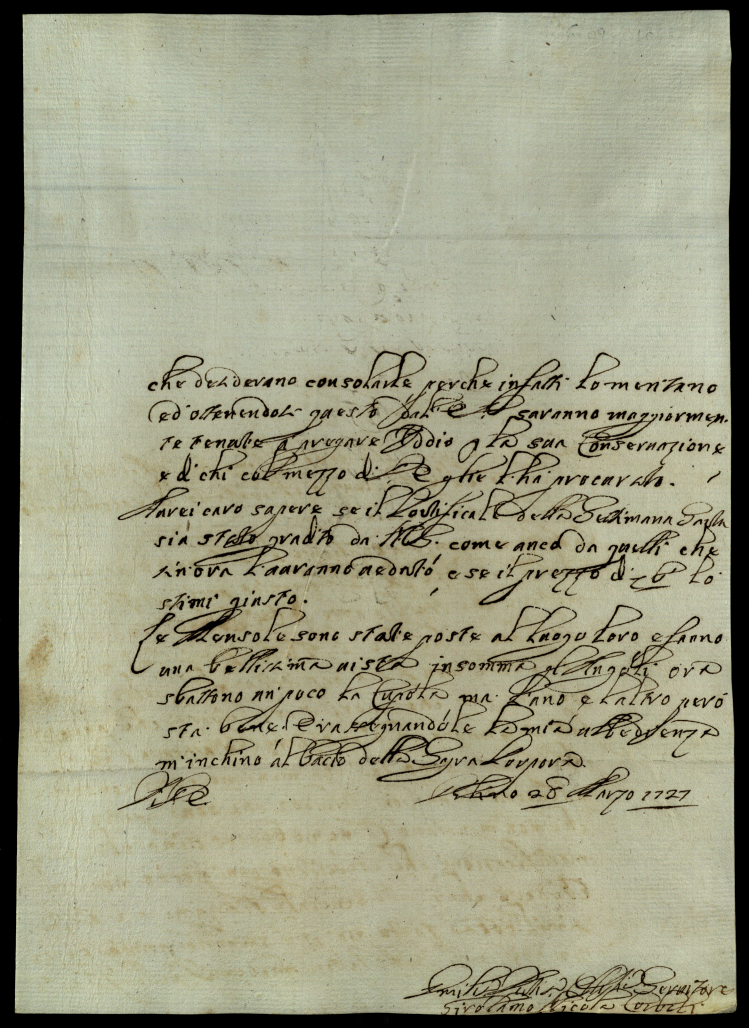 che desiderano consolarle perche in fatti lo meritano
ed ottenendosi questo dall' E. saranno maggiormen-
te tenute à pregare Iddio p la sua Conseruazione
e di chi col mezzo di V.E. glie l'hà procurato.
Harei caro sapere se il Pontificale della Settimana Santa
sia stato gradito da come anco da quelli che
sin'ora l'auranno ueduto, e se il prezzo di lo
stimi giusto.
Le Mensole sono state poste al luogo loro e fanno
una bellissima uista insomma gl'Angoli ora
sbattono un poco la Cupola ma l'uno e l'altro però
stà bene. E rassegnandole la mia ubbedienza
m'inchino al bacio della Sagra Porpora.
V. Em. Urbino 28 Marzo 1727
Seruitore
Girolamo Nicola